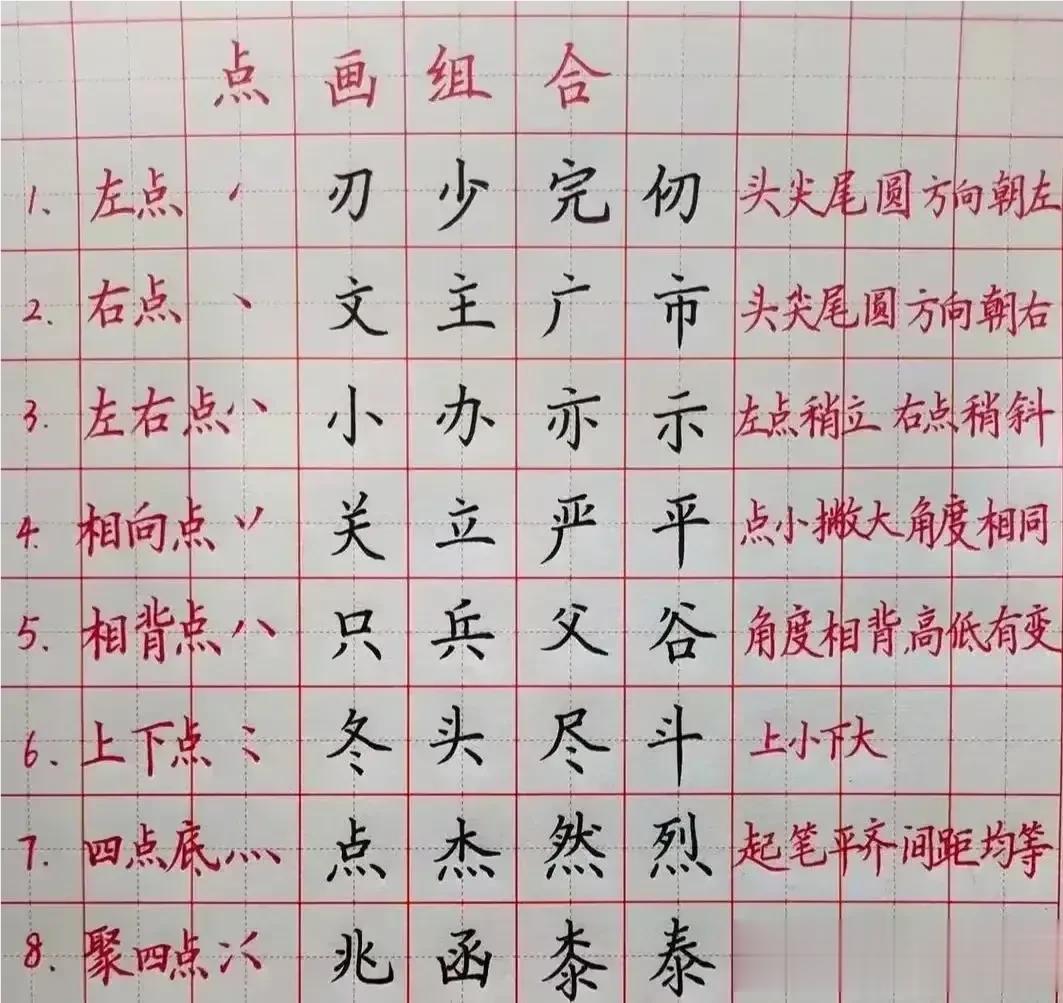 点画组合
1. 左点 丿 刃 少 完 仞 头尖尾圆方向朝左
2. 右点 丶 文 主 广 市 头尖尾圆方向朝右
3. 左右点 八 小 办 亦 示 左点稍立 右点稍斜
4. 相向点 丷 关 立 严 平 点小撇大角度相同
5. 相背点 八 只 兵 父 谷 角度相背.高低有变
6. 上下点 冬 头 尽 斗 上小下大
7. 四点底 灬 点 杰 然 烈 起笔平齐间距均等
8. 聚四点 兆 函 泰